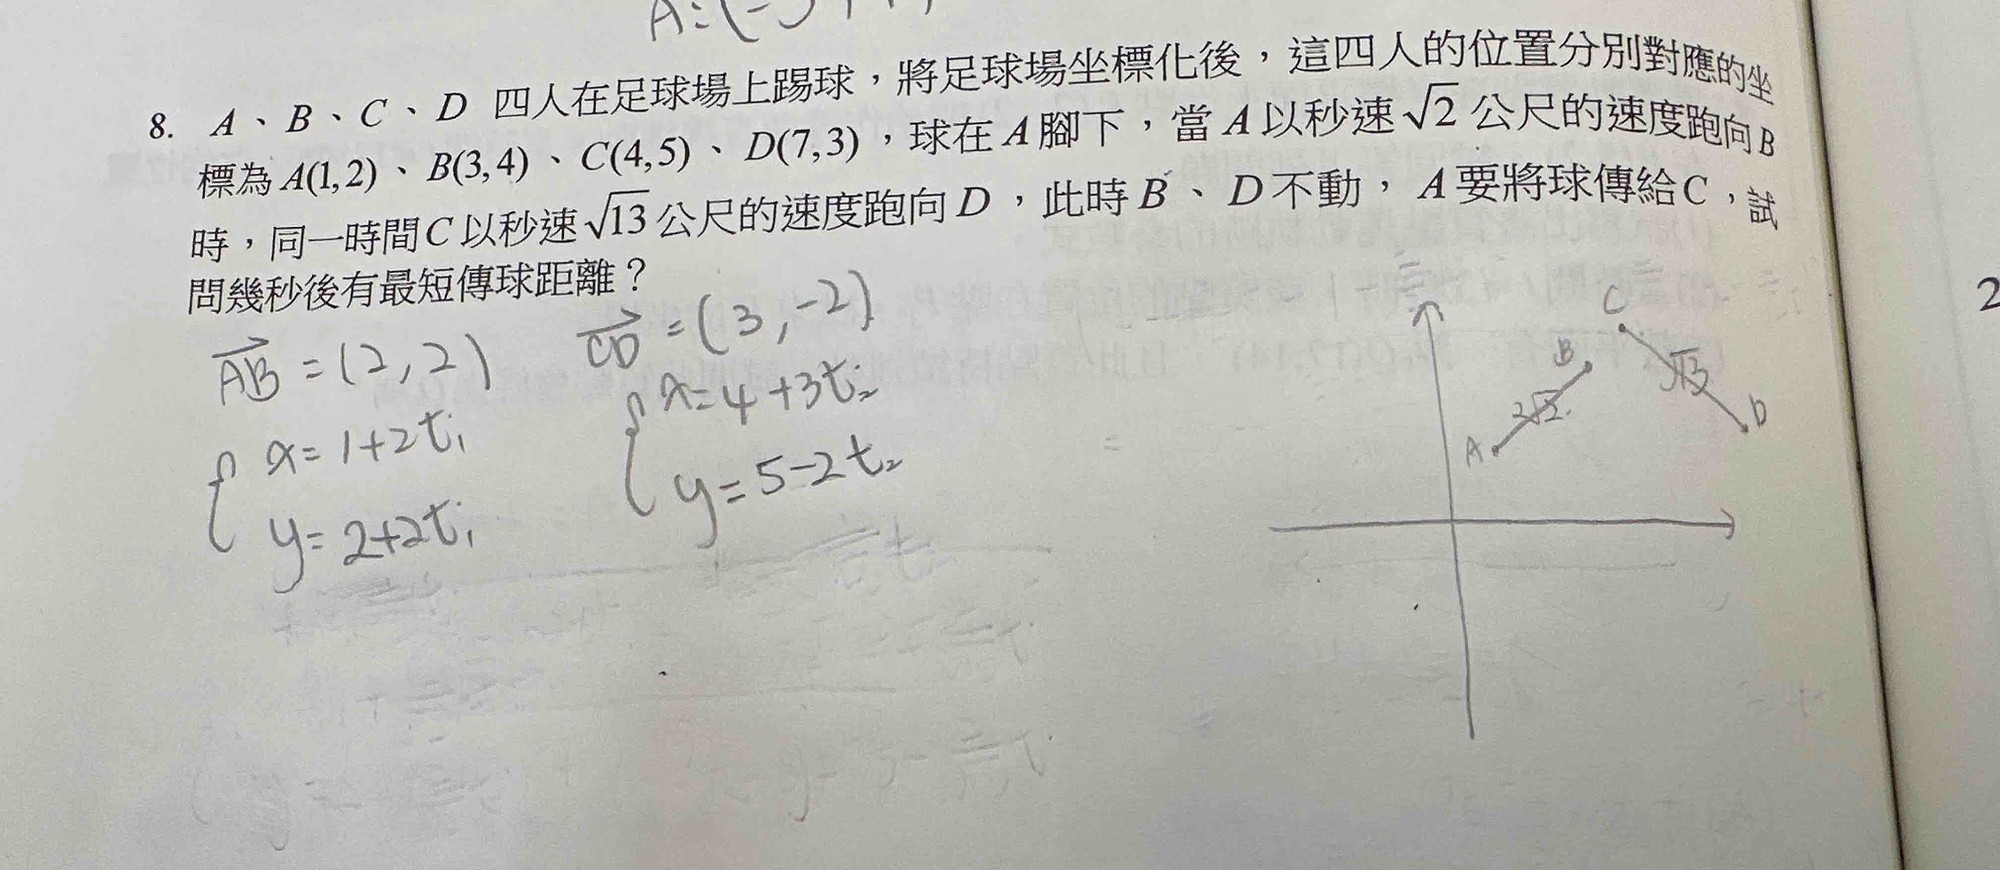 8. A、B、C、D 四人在足球場上踢球,將足球場坐標化後,這四人的位置分別對應的坐
標為 A(1,2)、B(3,4)、C(4,5)、D(7,3),球在 A 腳下,當 A 以秒速 √2 公尺的速度跑向 B
時,同一時間 C 以秒速 √13 公尺的速度跑向 D,此時 B、D 不動,A 要將球傳給 C,試
問幾秒後有最短傳球距離?
AB = (2, 2)
CD = (3, -2)
x = 1+2t₁
y = 2+2t₁
x = 4+3t₂
y = 5-2t₂
C
B
√13
2√2
D
A
2